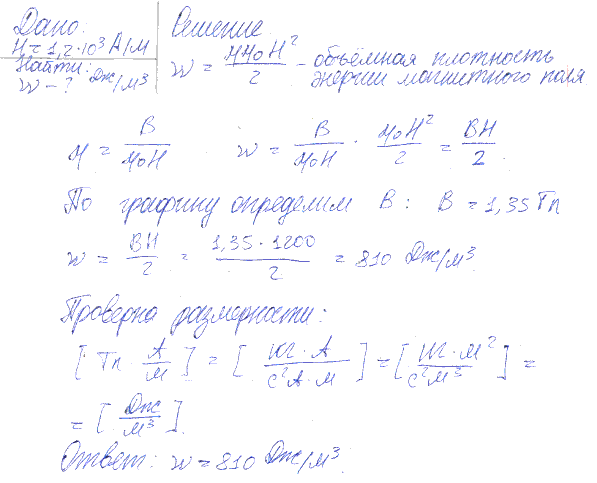 Дано:
H = 1,2·10³ А/м
Найти:
w – ? Дж/м³
Решение
w = μμ₀H²/2 – объёмная плотность энергии магнитного поля
μ = B/μ₀H w = B/μ₀H · μ₀H²/2 = BH/2.
По графику определим B: B = 1,35 Тл
w = BH/2 = 1,35·1200/2 = 810 Дж/м³
Проверка размерности:
[Тл · А/м] = [кг·А/с²А·м] = [кг·м²/с²м³] =
= [Дж/м³].
Ответ: w = 810 Дж/м³.